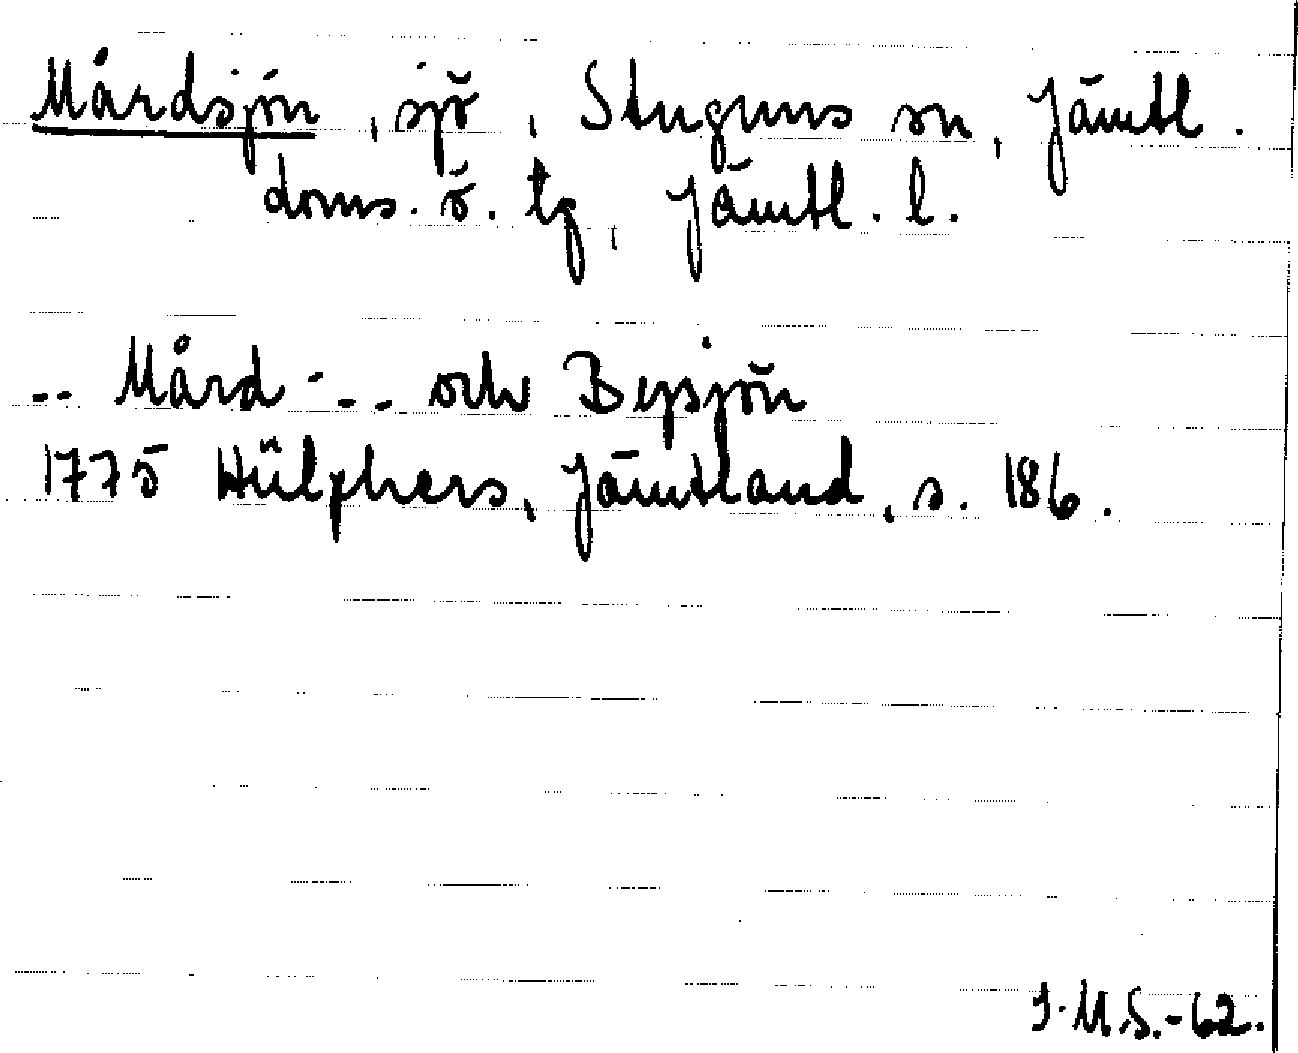 Mårdsjön, sjö, Stuguns sn, Jämtl.
doms. ö. tg, Jämtl. l.
-- Mård- -- och Bysjön
1775 Hülphers, Jämtland, s. 186.
I.M.S.-62.